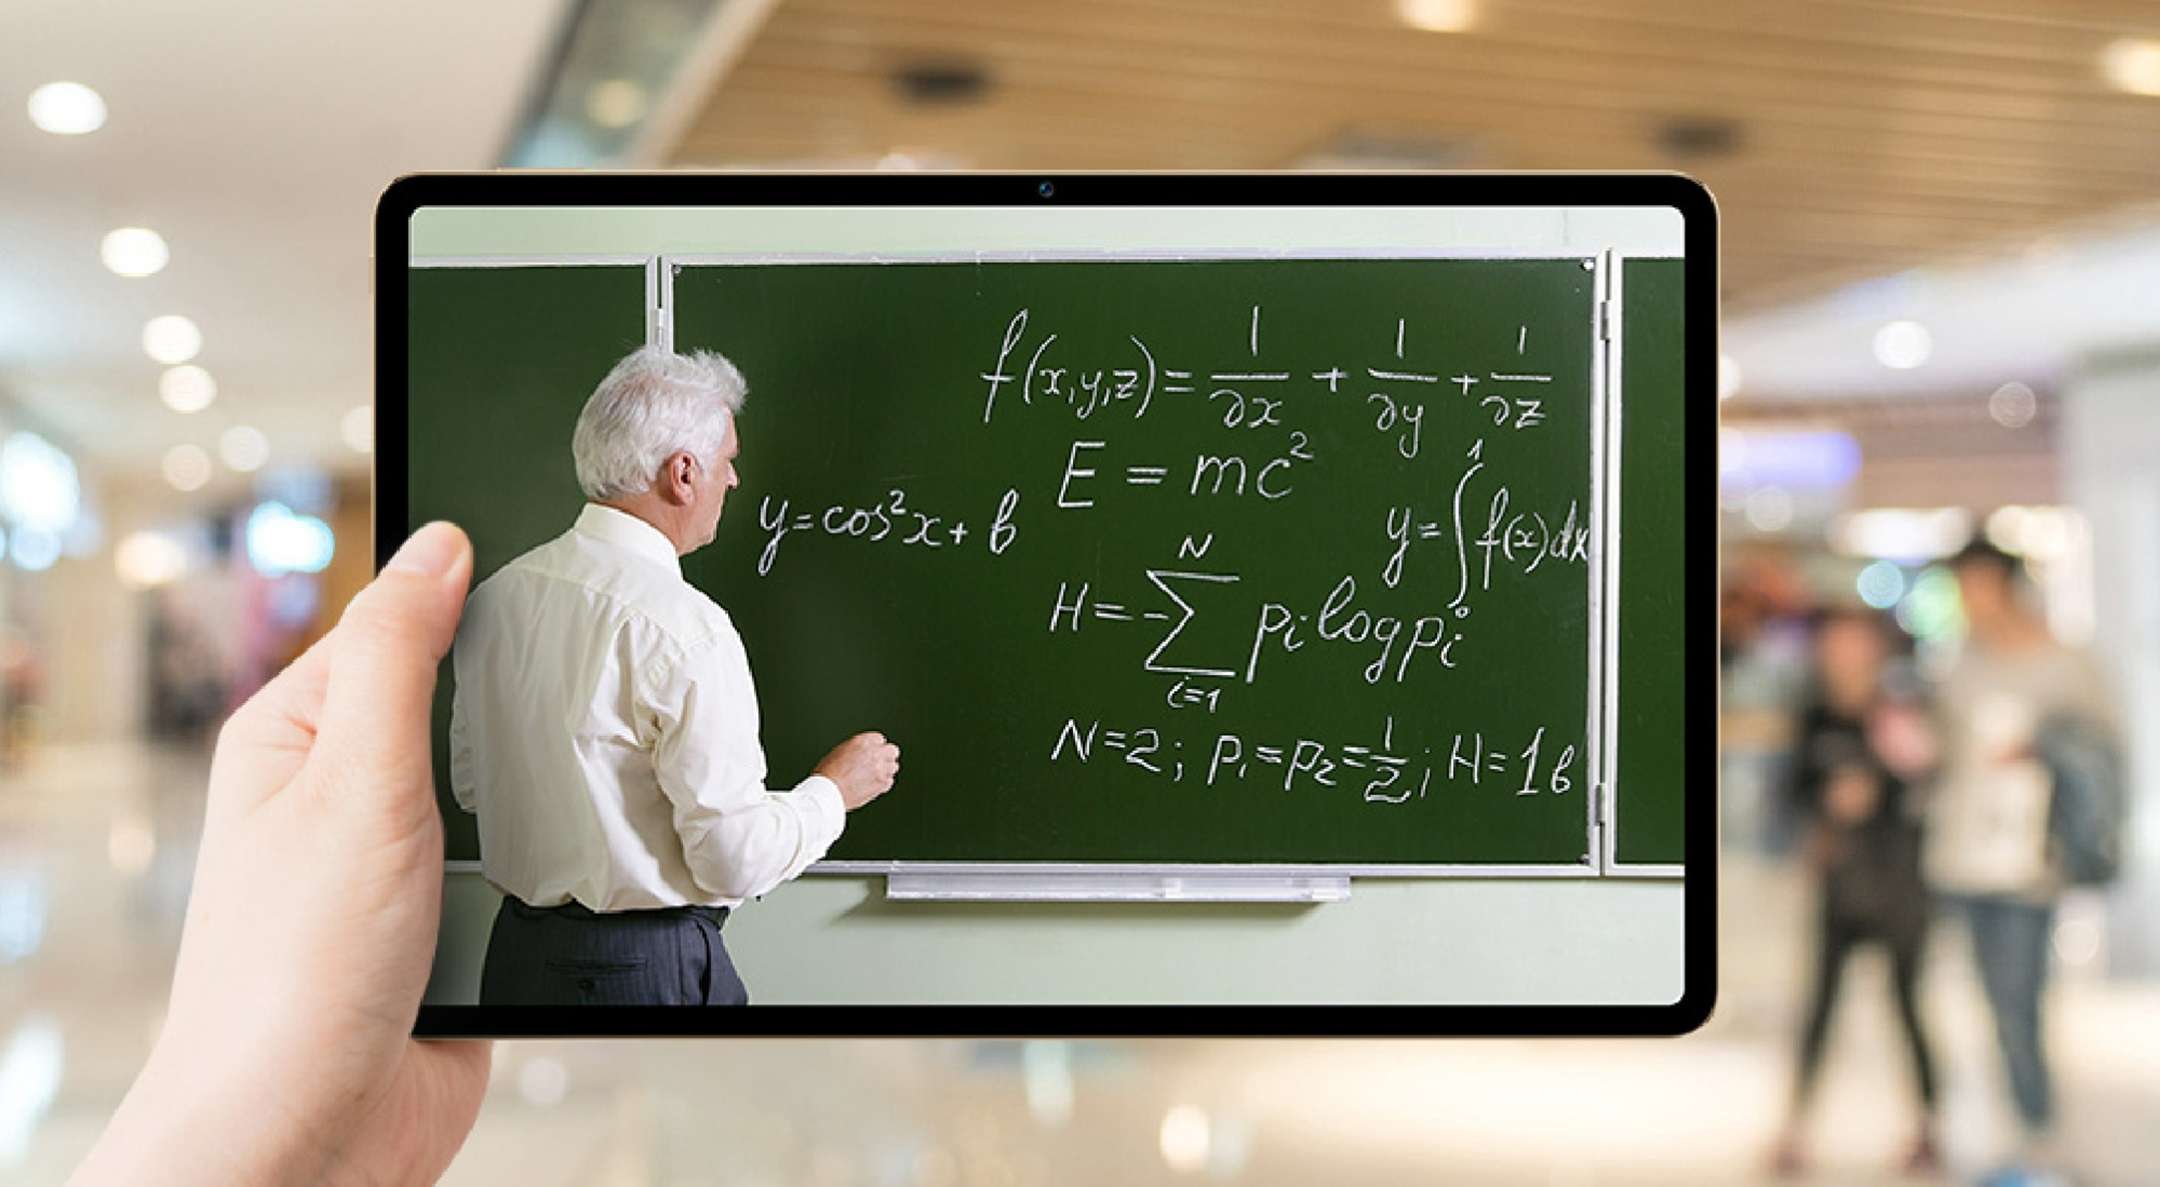 f(x,y,z)= 1/∂x + 1/∂y + 1/∂z
E = mc²
y=cos²x+ b
y=∫₀¹ f(x)dx
H=-∑ᵢ₌₁ᴺ pᵢ log pᵢ
N=2; p₁=p₂=1/2; H=1b